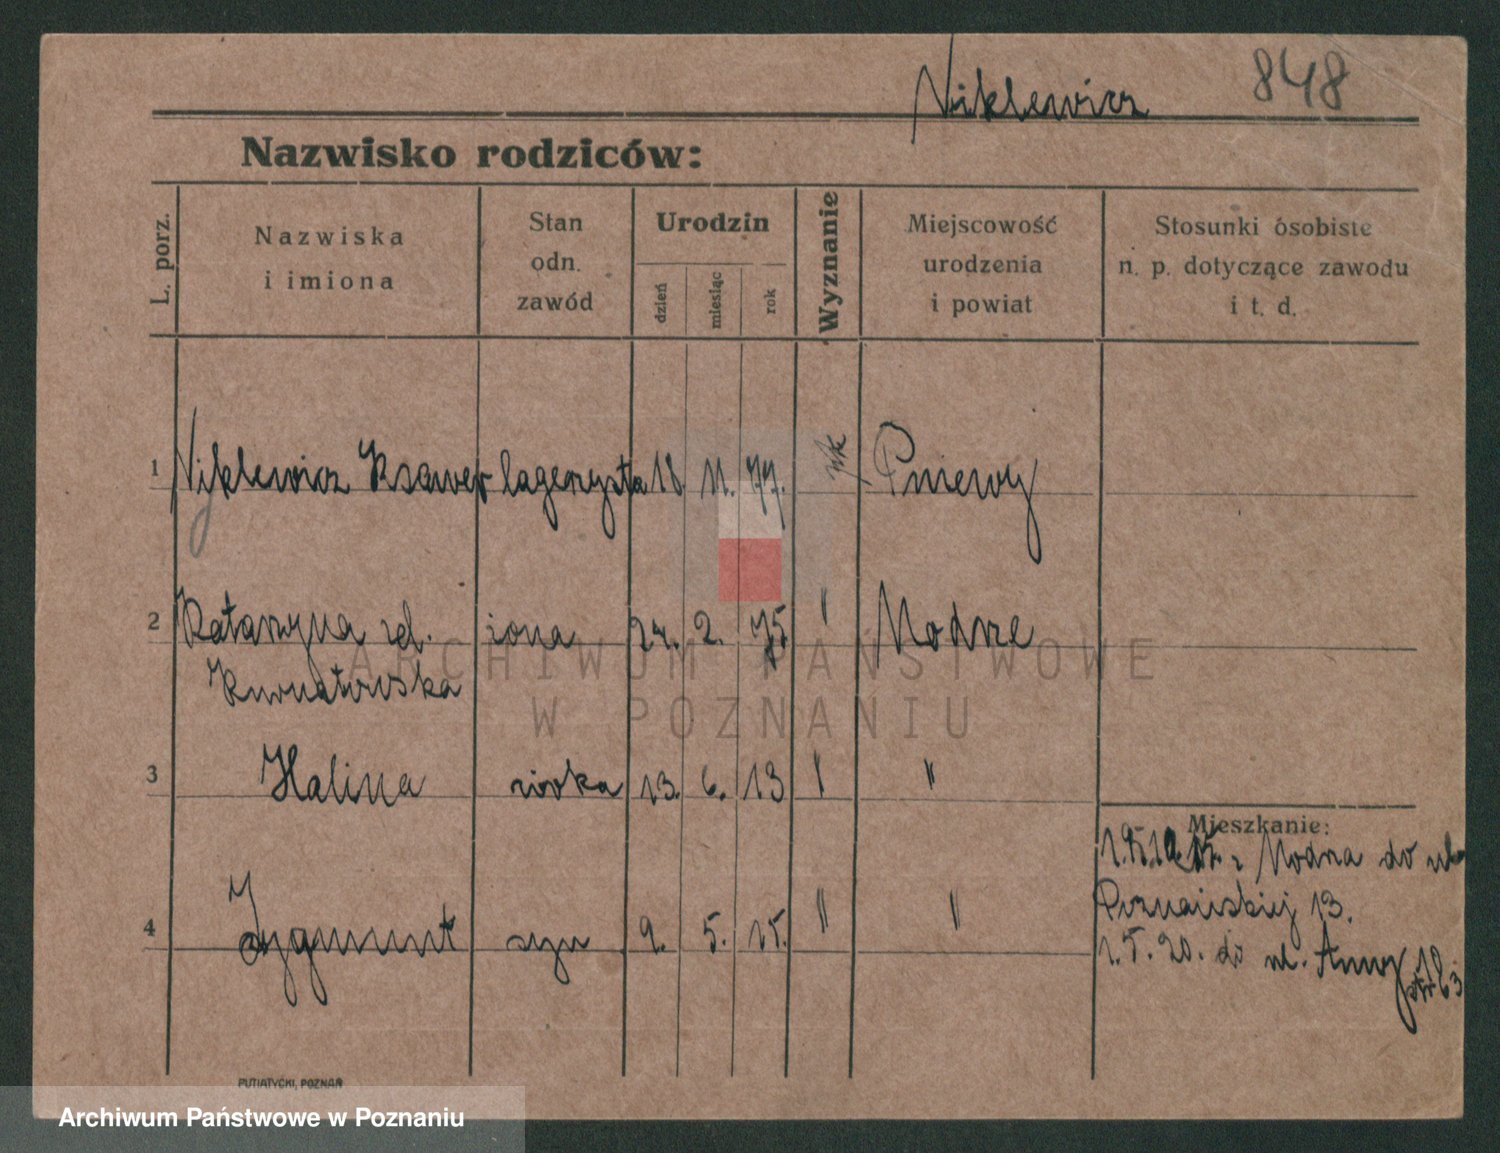 Niklewicz 848
Nazwisko rodziców:
L. porz.
Nazwiska
i imiona
Stan
odn.
zawód
Urodzin
dzień
miesiąc
rok
Wyznanie
Miejscowość
urodzenia
i powiat
Stosunki ósobiste
n. p. dotyczące zawodu
i t. d.
1 Niklewicz Ksawer lagerzysta 18 11. 77. rzk Pniewy
2 Katarzyna zd. żona 24. 2. 75. " Modrze
Kurnatowska
3 Halina córka 13. 6. 13 " "
Mieszkanie:
z Modrza do
Poznańskiej 13.
4 Zygmunt syn 9. 5. 15. " "
1. 5. 20. do ul. Anny
ARCHIWUM PAŃSTWOWE
W POZNANIU
PUTIATYCKI, POZNAŃ
Archiwum Państwowe w Poznaniu